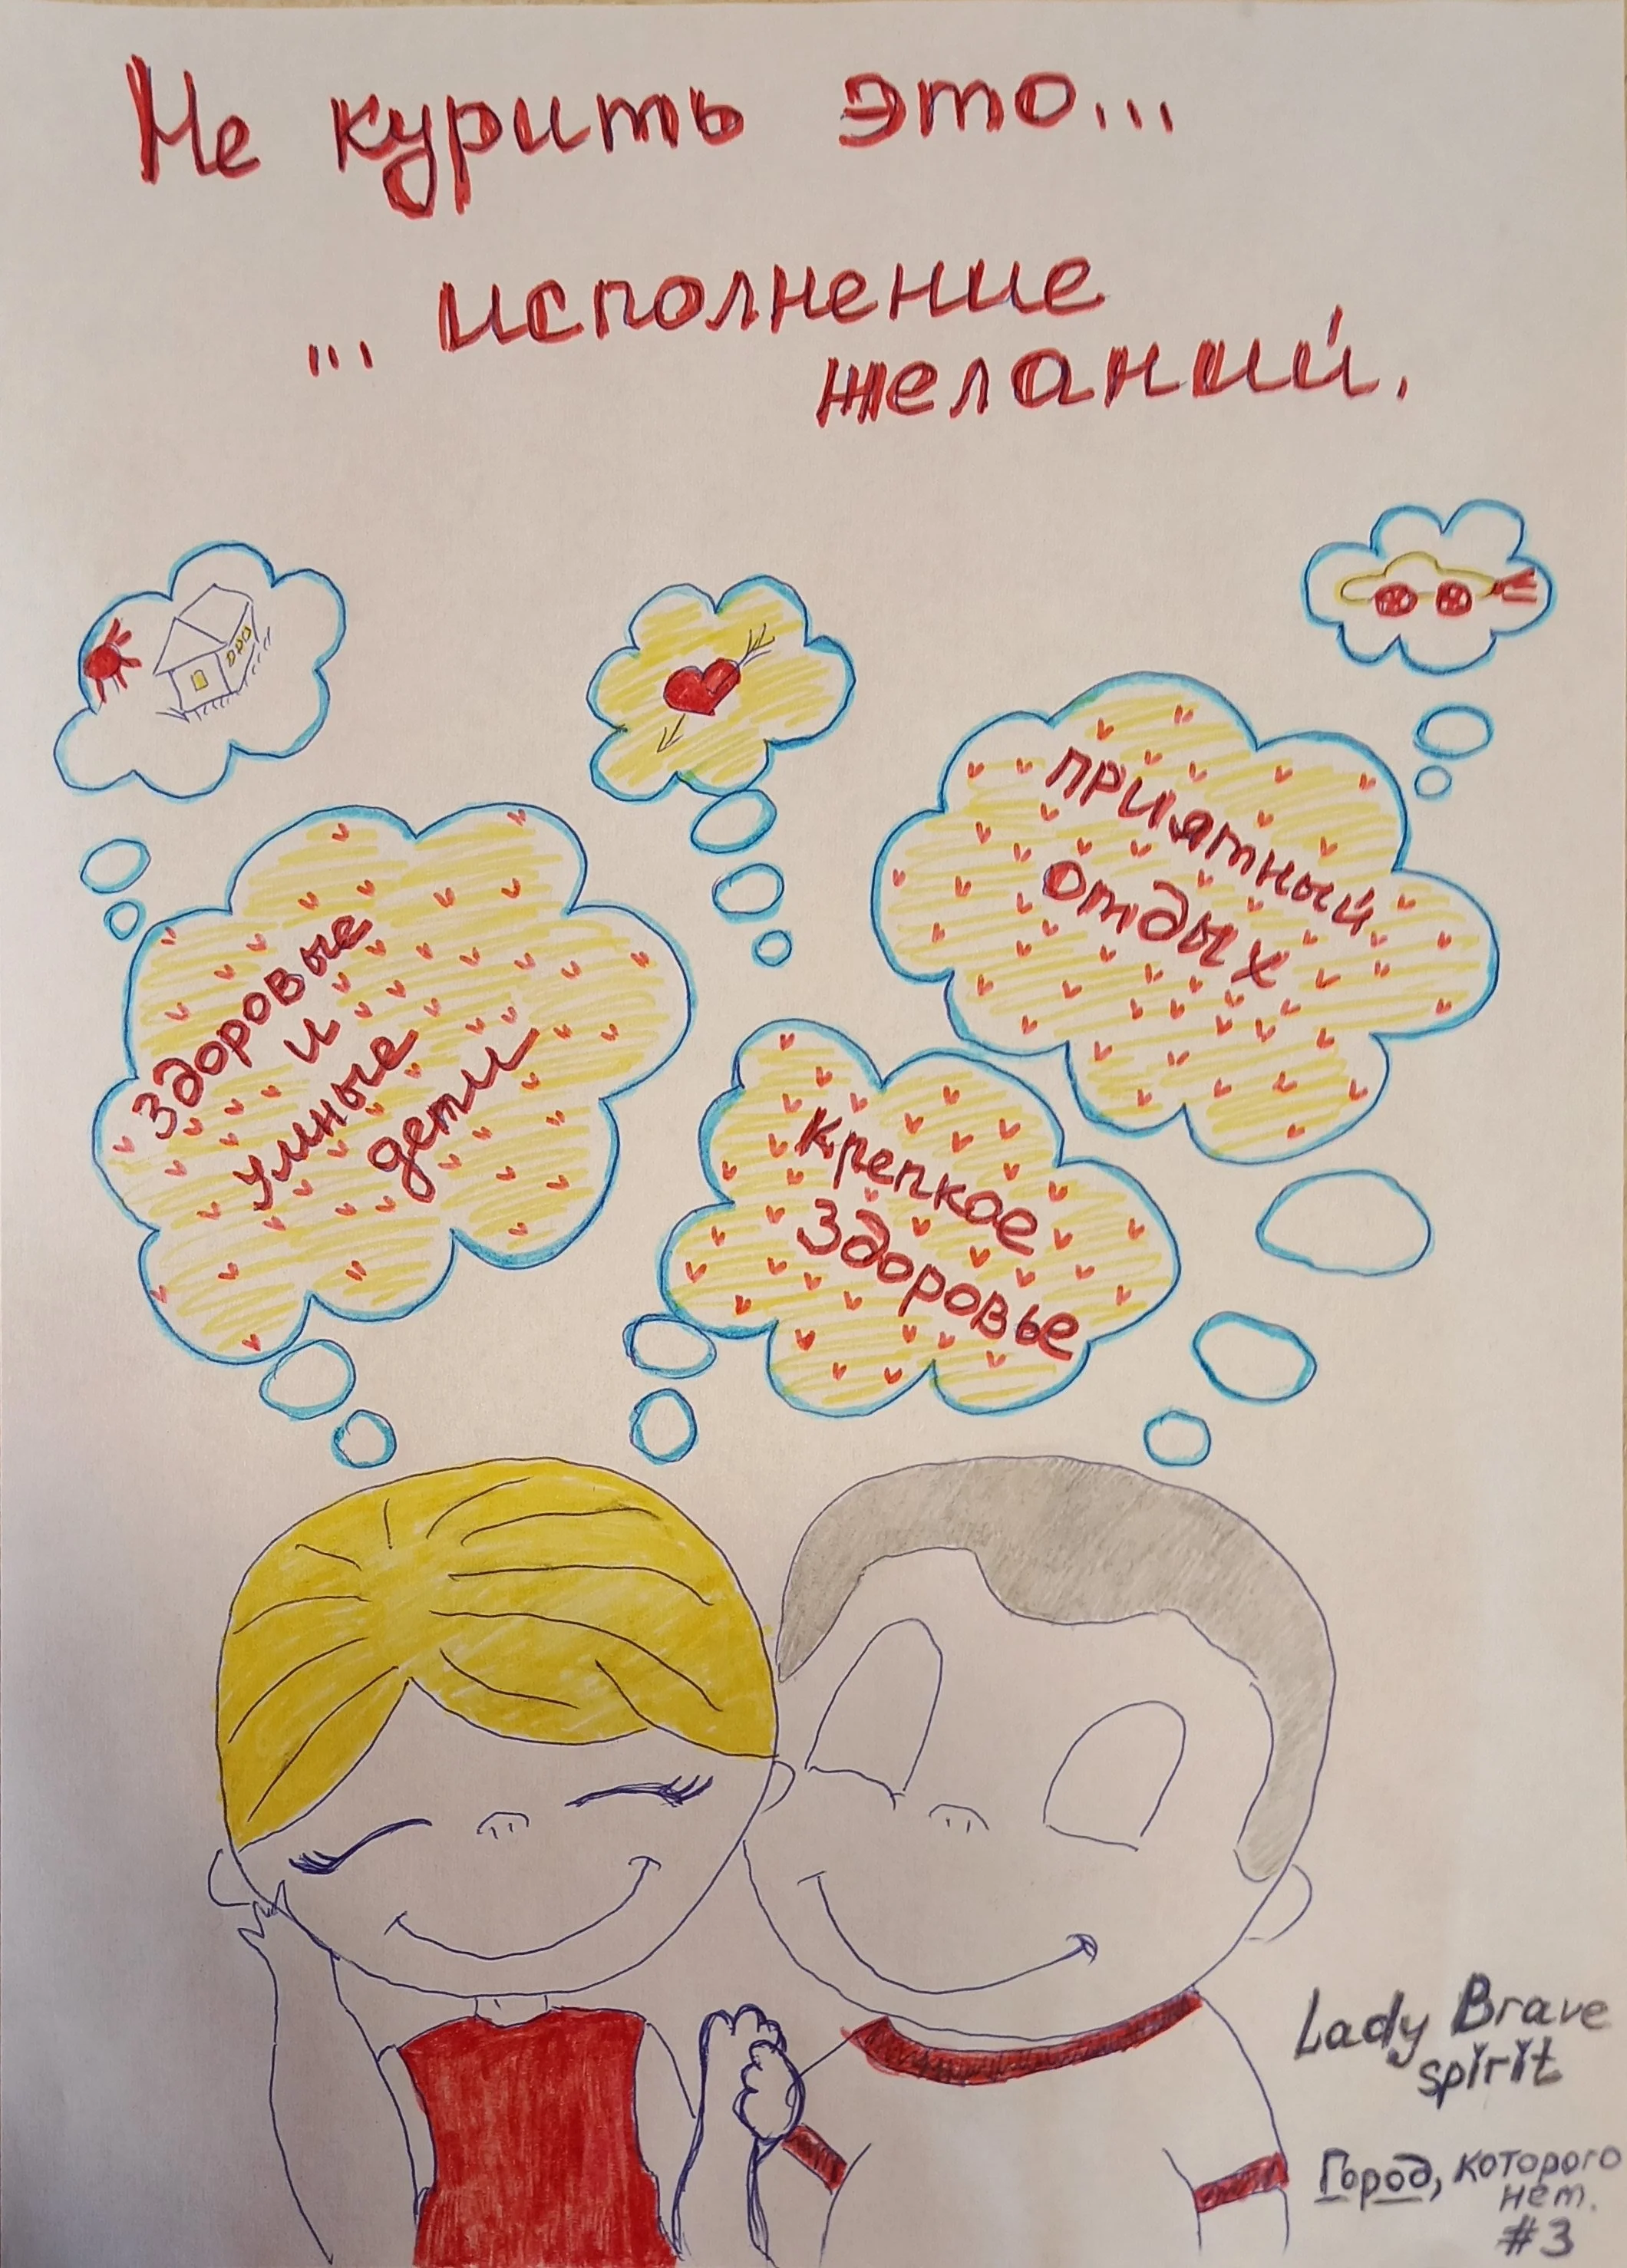 Не курить это...
... исполнение
желаний.
Здоровые
и
умные
дети
приятный
отдых
крепкое
здоровье
Lady Brave
spirit
Город, которого
нет.
#3